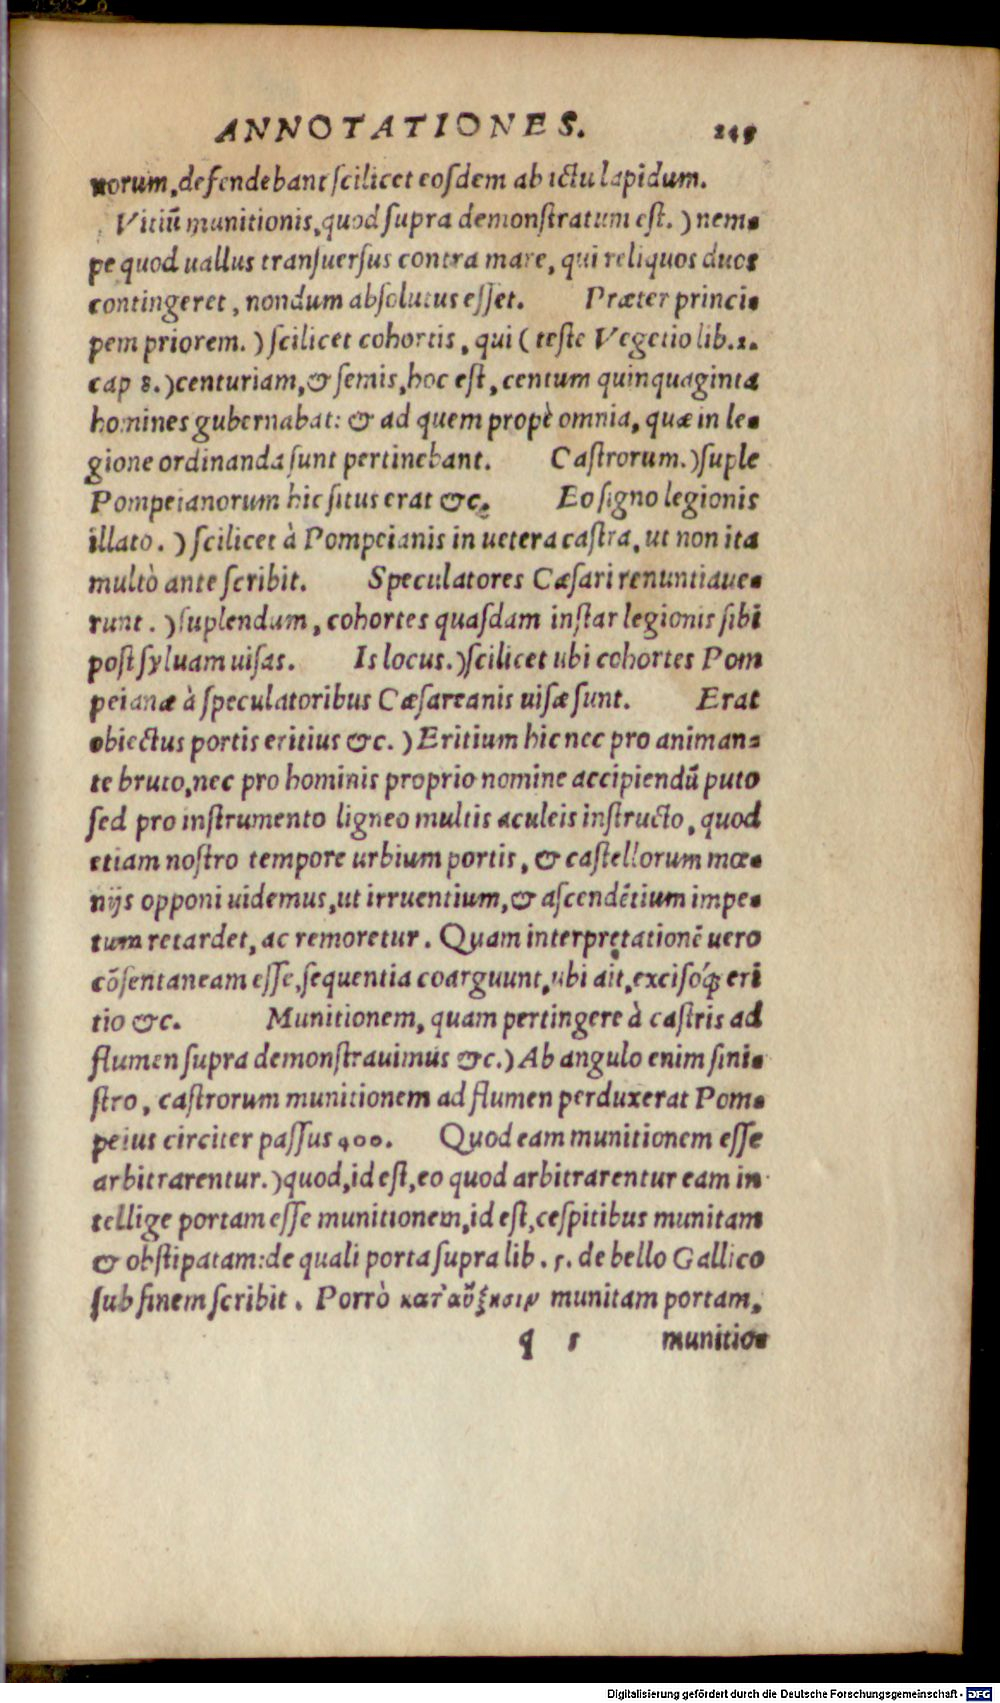 ANNOTATIONES. 249
norum, defendebant scilicet eosdem ab ictu lapidum.
Vitiū munitionis, quod supra demonstratum est.) nem-
pe quod uallus transuersus contra mare, qui reliquos duos
contingeret, nondum absolutus esset. Præter princi-
pem priorem.) scilicet cohortis, qui (teste Vegetio lib. 2.
cap 8.) centuriam, & semis, hoc est, centum quinquaginta
homines gubernabat: & ad quem propè omnia, quæ in le-
gione ordinanda sunt pertinebant. Castrorum.) suple
Pompeianorum hic situs erat &c. Eo signo legionis
illato.) scilicet à Pompeianis in uetera castra, ut non ita
multò ante scribit. Speculatores Cæsari renuntiaue-
runt.) suplendum, cohortes quasdam instar legionis sibi
post syluam uisas. Is locus.) scilicet ubi cohortes Pom
peianæ à speculatoribus Cæsareanis uisæ sunt. Erat
obiectus portis eritius &c.) Eritium hic nec pro animan-
te bruto, nec pro hominis proprio nomine accipiendū puto
sed pro instrumento ligneo multis aculeis instructo, quod
etiam nostro tempore urbium portis, & castellorum mœ-
nijs opponi uidemus, ut irruentium, & ascendētium impe-
tum retardet, ac remoretur. Quam interpretationē uero
cōsentaneam esse, sequentia coarguunt, ubi ait, excisóq; eri
tio &c. Munitionem, quam pertingere à castris ad
flumen supra demonstrauimus &c.) Ab angulo enim sini-
stro, castrorum munitionem ad flumen perduxerat Pom-
peius circiter passus 400. Quod eam munitionem esse
arbitrarentur.) quod, id est, eo quod arbitrarentur eam in
tellige portam esse munitionem, id est, cespitibus munitam
& obstipatam: de quali porta supra lib. 5. de bello Gallico
sub finem scribit. Porrò κατ' αὔξησιν munitam portam,
q 5 munitio-
Digitalisierung gefördert durch die Deutsche Forschungsgemeinschaft - DFG